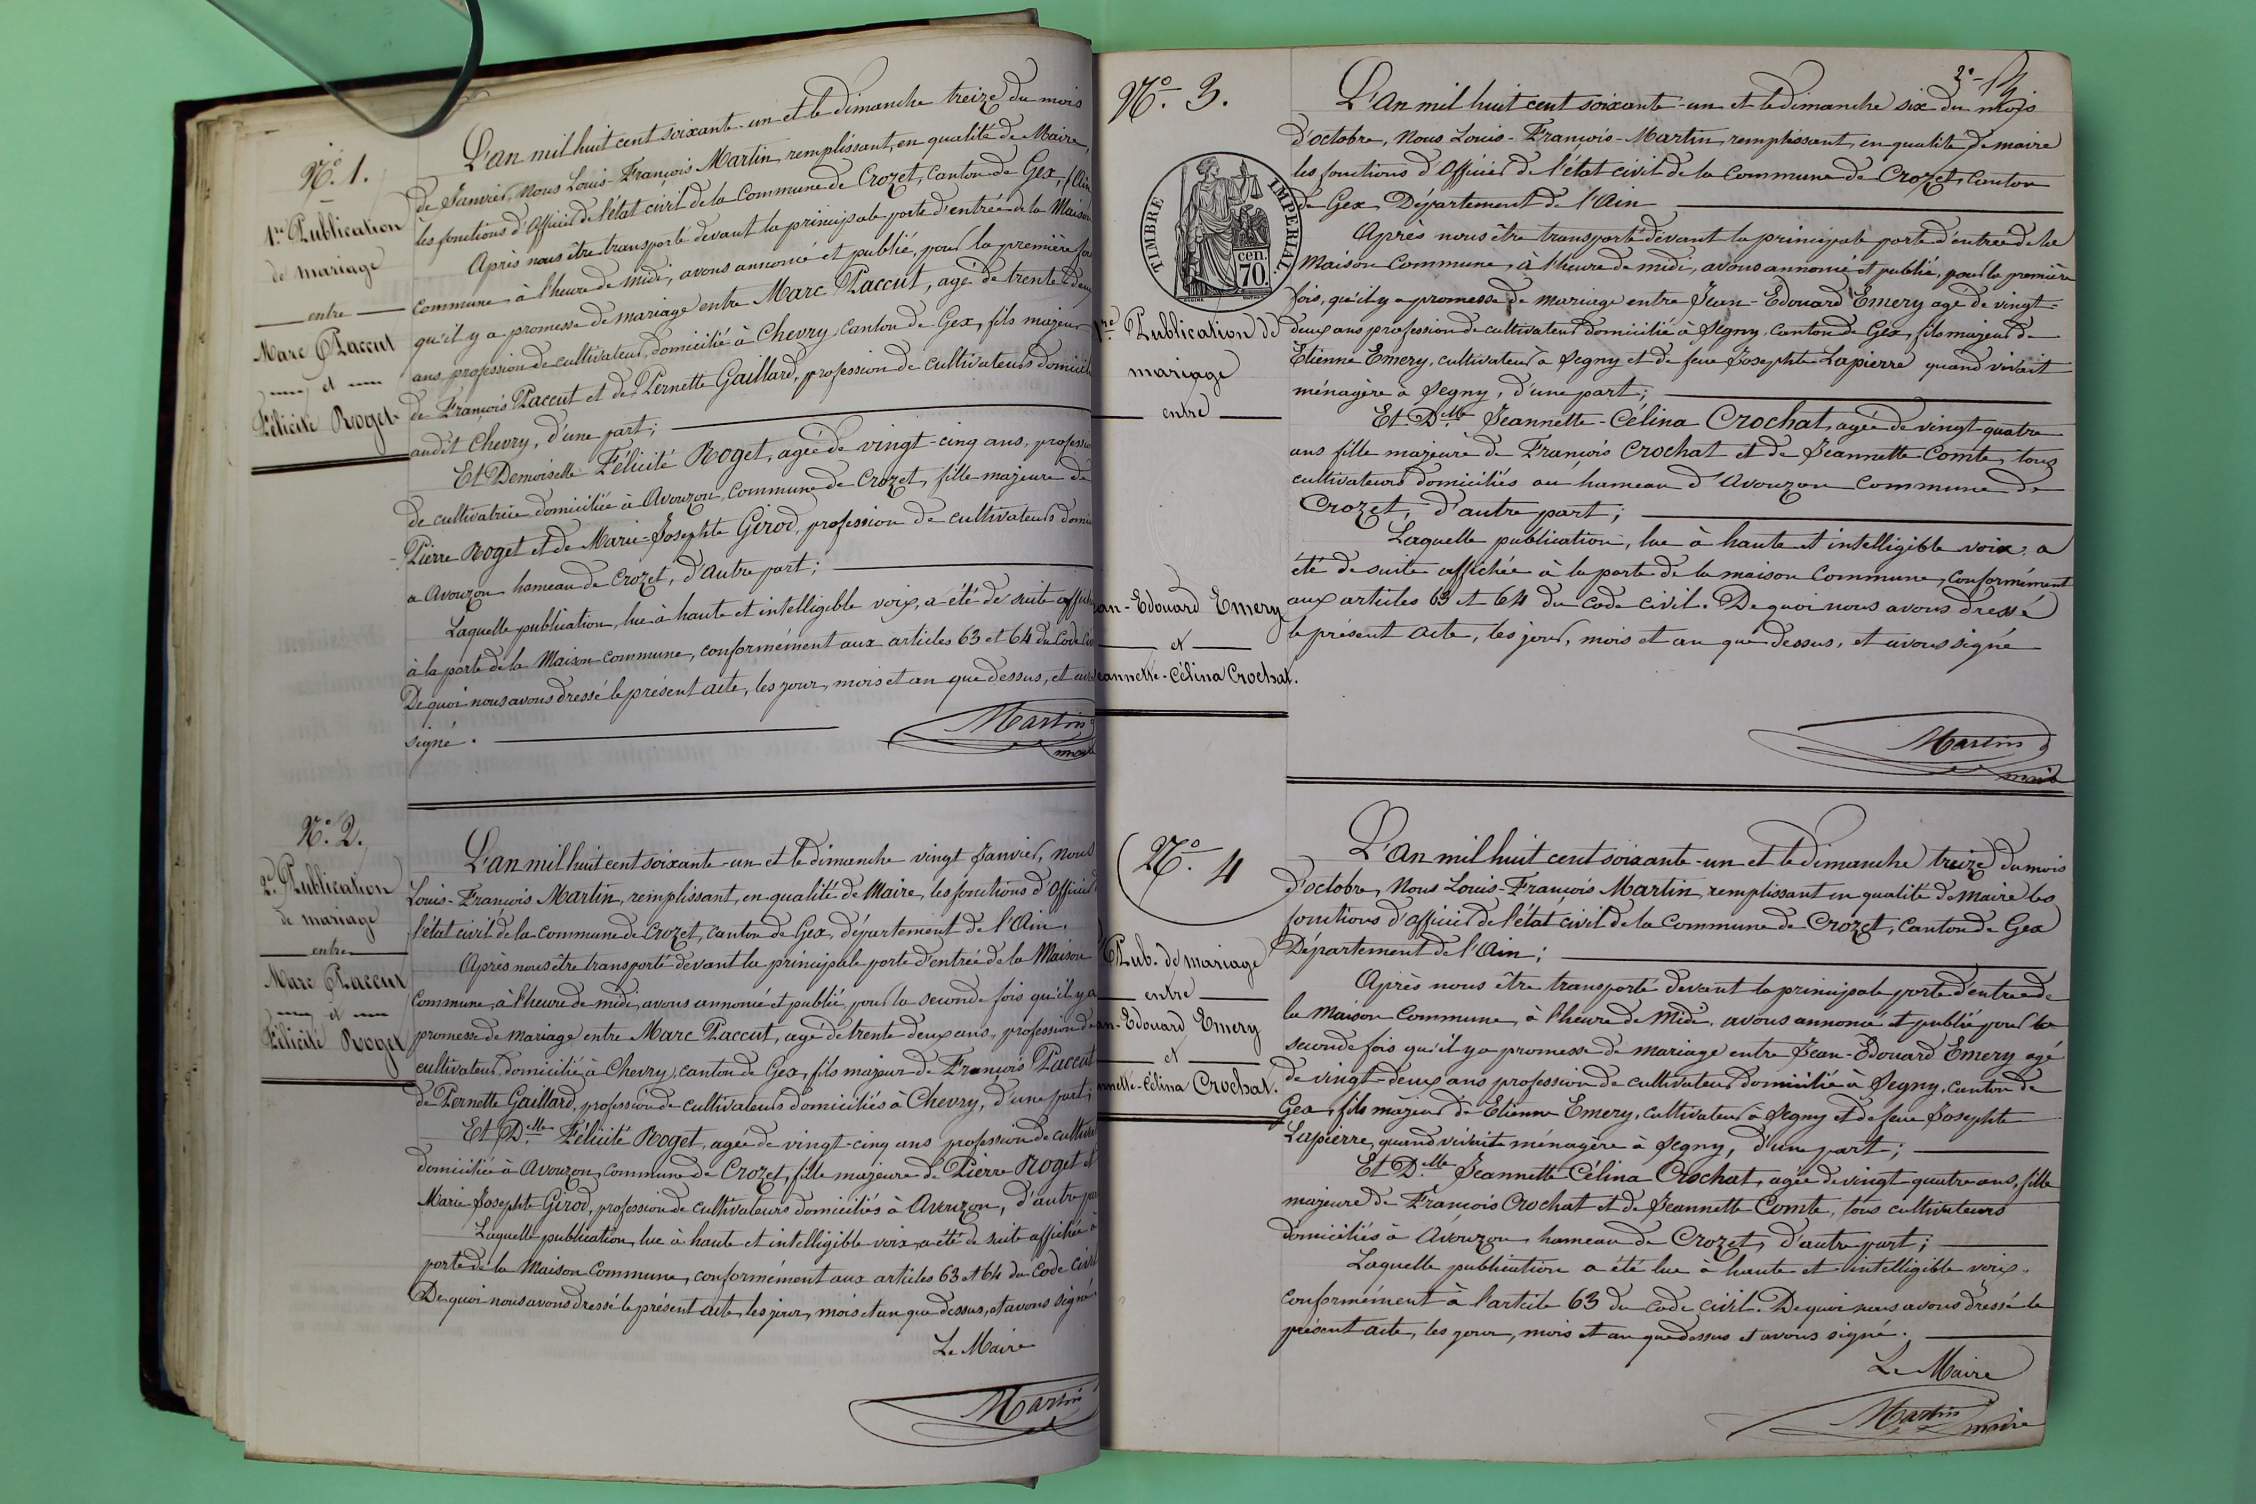 N.o 1.
1.re Publication
de mariage
entre
Marc Paccut
et
Félicité Roget
L'an mil huit cent soixante-un et le dimanche treize du mois
de Janvier, nous Louis-François Martin, remplissant, en qualité de Maire,
les fonctions d'officier de l'état civil de la Commune de Crozet, canton de Gex, (Ain
Après nous être transporté devant la principale porte d'entrée de la Maison
commune, à l'heure de midi, avons annoncé et publié, pour la première fois
qu'il y a promesse de mariage entre Marc Paccut, agé de trente deux
ans profession de cultivateur, domicilié à Chevry canton de Gex, fils majeur
de François Paccut et de Pernette Gaillard, profession de cultivateurs domicilié
audit Chevry, d'une part;
Et Demoiselle Félicité Roget, agée de vingt-cinq ans, profession
de cultivatrice domiciliée à Avouzon, commune de Crozet, fille majeure de
Pierre Roget et de Marie-Josephte Girod, profession de cultivateurs domi
a Avouzon hameau de Crozet, d'autre part;
Laquelle publication, lue à haute et intelligible voix, a été de suite affiché
à la porte de la Maison commune, conformément aux articles 63 et 64 du Code Civ
De quoi nous avons dressé le présent acte, les jour, mois et an que dessus, et avon
signé.
Martin
maire
N.o 2.
2.e Publication
de mariage
entre
Marc Paccut
et
Félicité Roget
L'an mil huit cent soixante-un et le dimanche vingt Janvier, nous
Louis-François Martin, remplissant, en qualité de Maire, les fonctions d'officier d
l'état civil de la commune de Crozet, canton de Gex, département de l'Ain.
Après nous être transporté devant la principale porte d'entrée de la Maison
Commune, à l'heure de midi, avons annoncé et publié, pour la seconde fois qu'il y a
promesse de mariage entre Marc Paccut, agé de trente-deux ans, profession de
cultivateur, domicilié à Chevry, canton de Gex, fils majeur de François Paccut
de Pernette Gaillard, profession de cultivateurs domiciliés à Chevry, d'une part;
Et D.elle Félicité Roget, agée de vingt-cinq ans profession de cultiva
domiciliée à Avouzon, commune de Crozet, fille majeure de Pierre Roget et
Marie-Josephte Girod, profession de cultivateurs domiciliés à Avouzon, d'autre par
Laquelle publication, lue à haute et intelligible voix, a été de suite affichée à
porte de la Maison commune, conformément aux articles 63 et 64 du Code civil
De quoi nous avons dressé le présent acte, les jour, mois et an que dessus, et avons signé.
Le Maire
Martin
N.o 3.
TIMBRE IMPERIAL.
cen. 70.
1.re Publication de
mariage
entre
an-Edouard Emery
et
eannette-Célina Crochat.
L'an mil huit cent soixante-un et le dimanche six du mois
d'octobre, Nous Louis-François-Martin, remplissant, en qualité de maire
les fonctions d'officier de l'état civil de la Commune de Crozet, Canton
de Gex, Département de l'Ain
Après nous être transporté devant la principale porte d'entrée de la
Maison Commune, à l'heure de midi, avons annoncé et publié, pour la première
fois, qu'il y a promesse de mariage entre Jean-Edouard Emery agé de vingt-
deux ans profession de cultivateur domicilié à Segny, canton de Gex, fils majeur de
Etienne Emery, cultivateur à Segny et de feue Josephte Lapierre quand vivait
ménagère à Segny, d'une part;
Et D.elle Jeannette-Célina Crochat, agée de vingt quatre
ans fille majeure de François Crochat et de Jeannette Comte, tous
cultivateurs domiciliés au hameau d'Avouzon commune de
Crozet, d'autre part;
Laquelle publication, lue à haute et intelligible voix, a
été de suite affichée à la porte de la maison commune, conformément
aux articles 63 et 64 du Code civil. De quoi nous avons dressé
le présent acte, les jour, mois et an que dessus, et avons signé
Martin
maire
N.o 4
Pub. de mariage
entre
an-Edouard Emery
et
nnette-Célina Crochat.
L'an mil huit cent soixante-un et le dimanche treize du mois
d'octobre, Nous Louis-François Martin, remplissant en qualité de Maire les
fonctions d'officier de l'état civil de la commune de Crozet, canton de Gex
Département de l'Ain;
Après nous être transporté devant la principale porte d'entrée de
la Maison commune, à l'heure de Midi, avons annoncé et publié pour la
seconde fois qu'il y a promesse de mariage entre Jean-Edouard Emery agé
de vingt-deux ans profession de cultivateur domicilié à Segny, canton de
Gex, fils majeur de Etienne Emery, cultivateur à Segny et de feue Josephte
Lapierre, quand vivait ménagère à Segny, d'une part;
Et D.elle Jeannette Célina Crochat, agée de vingt quatre ans, fille
majeure de François Crochat et de Jeannette Comte, tous cultivateurs
domiciliés à Avouzon, hameau de Crozet, d'autre part;
Laquelle publication a été lue à haute et intelligible voix,
conformément à l'article 63 du code civil. De quoi nous avons dressé le
présent acte, les jour, mois et an que dessus et avons signé.
Le Maire
Martin
maire